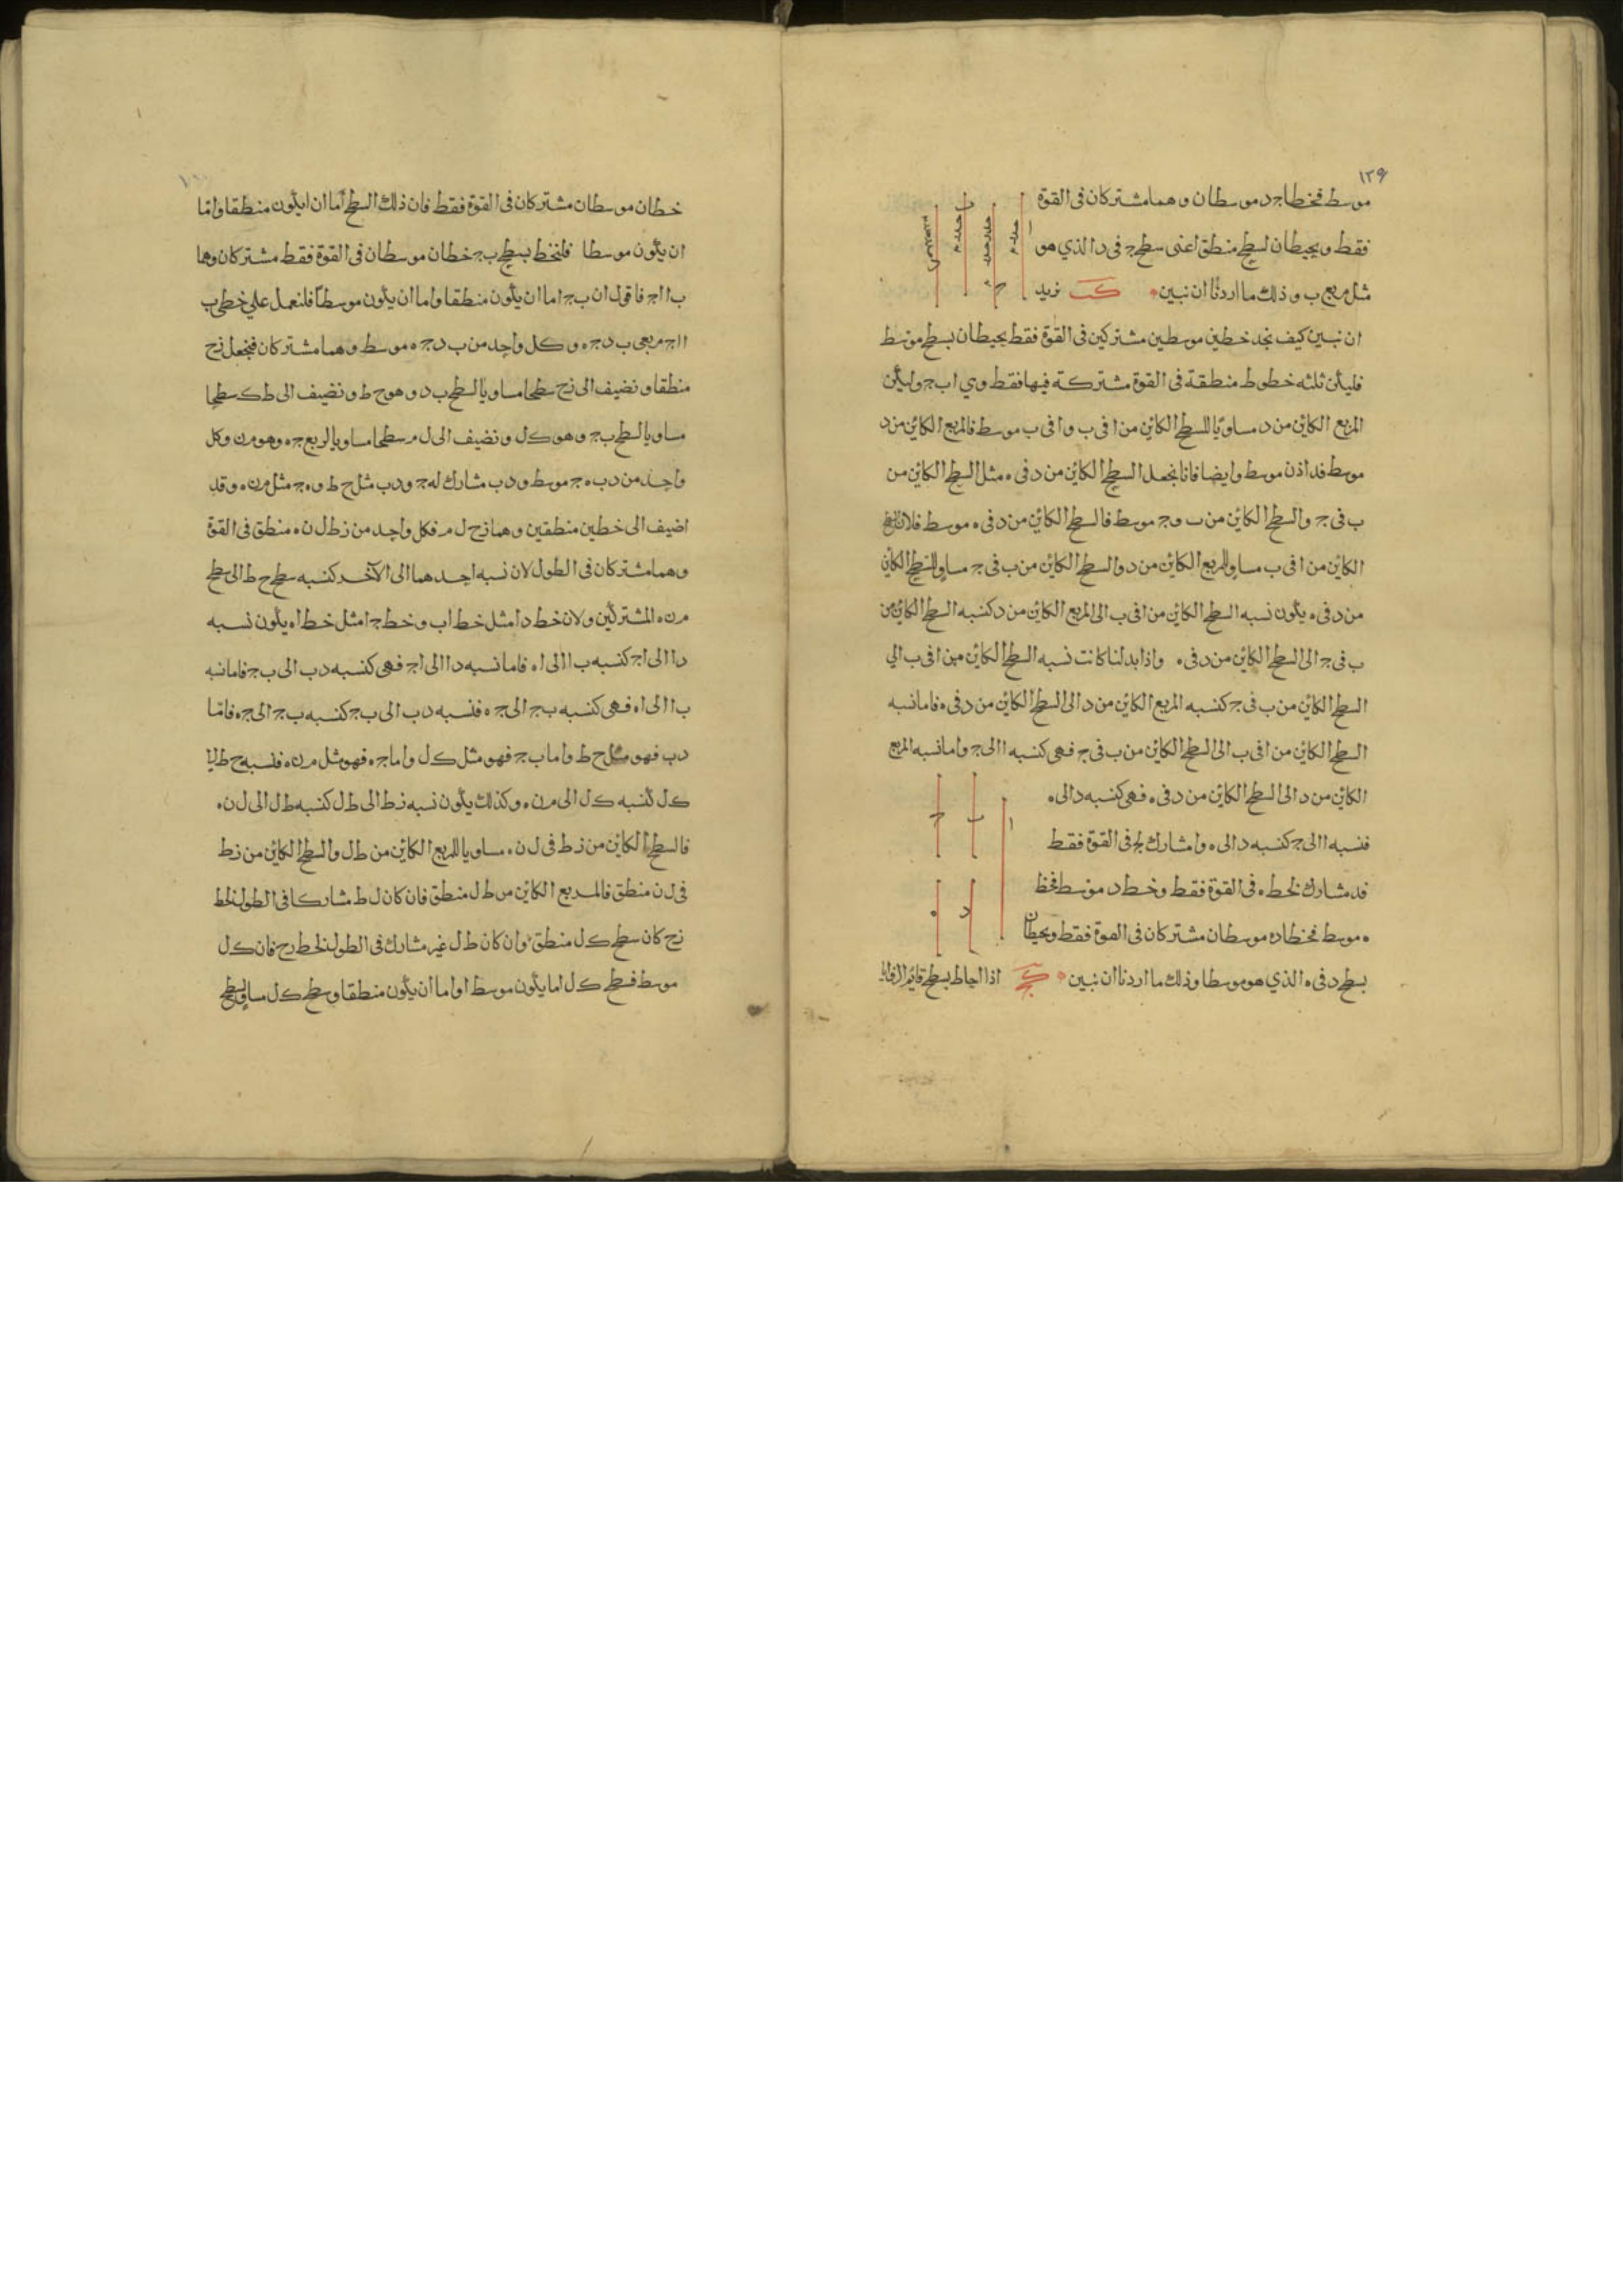 ١٢٩
موسط فخطا جد موسطان وهما مشتركان فى القوة
فقط ويحيطان بسطح منطق اعنى سطح ج فى د الذي هو
مثل مربع ب وذلك ما اردنا ان نبين كب نريد
ان نبين كيف نجد خطين موسطين مشتركين فى القوة فقط يحيطان بسطح موسط
فليكن ثلثه خطوط منطقة فى القوة مشتركة فيها فقط وهي ا ب ج وليكن
المربع الكائن من د مساويا للسطح الكائن من ا فى ب وا فى ب موسط فالمربع الكائن من د
موسط فد اذن موسط وايضا فانا نجعل السطح الكائن من د فى ه مثل السطح الكائن من
ب فى ج والسطح الكائن من ب وج موسط فالسطح الكائن من د فى ه موسط فلان السطح
الكائن من ا فى ب مساو للمربع الكائن من د والسطح الكائن من ب فى ج مساو للسطح الكائن
من د فى ه يكون نسبه السطح الكائن من ا فى ب الى المربع الكائن من د كنسبه السطح الكائن من
ب فى ج الى السطح الكائن من د فى ه واذا بدلنا كانت نسبه السطح الكائن من ا فى ب الي
السطح الكائن من ب فى ج كنسبه المربع الكائن من د الى السطح الكائن من د فى ه فاما نسبه
السطح الكائن من ا فى ب الى السطح الكائن من ب فى ج فهى كنسبه ا الى ج واما نسبه المربع
الكائن من د الى السطح الكائن من د فى ه فهى كنسبه د الى ه
فنسبه ا الى ج كنسبه د الى ه وا مشارك لج فى القوة فقط
فد مشارك لخط ه فى القوة فقط وخط د موسط فخط
ه موسط فخطا د ه موسطان مشتركان فى القوة فقط ويحيطان
بسطح د فى ه الذي هو موسطا وذلك ما اردنا ان نبين كج اذا احاط بسطح قائم الزوايا
خطان موسطان مشتركان فى القوة فقط فان ذلك السطح اما ان يكون منطقا واما
ان يكون موسطا فلنخط بسطح ب ج خطان موسطان فى القوة فقط مشتركان وهما
ب ا اج فاقول ان ب ج اما ان يكون منطقا واما ان يكون موسطا فلنعمل علي خطى ب
ا اج مربعى ب د ج ه وكل واحد من ب د ج ه موسط وهما مشتركان فنجعل زح
منطقا ونضيف الى زح سطحا مساويا لسطح ب د وهو ح ط ونضيف الى ط ك سطحا
مساويا لسطح ب ج وهو ك ل ونضيف الى ل م سطحا مساويا لمربع ج ه وهو م ن وكل
واحد من د ب ه ج موسط ود ب مشارك له ج ود ب مثل ح ط وه ج مثل م ن ه وقد
اضيف الى خطين منطقين وهما زح ل م فكل واحد من زط ل ن ه منطق فى القوة
وهما مشتركان فى الطول لان نسبه احدهما الى الآخر كنسبه سطح ح ط الى سطح
م ن ه المشتركين ولان خط د ا مثل خط ا ب وخط ج ا مثل خط ا ه يكون نسبه
د ا الى ا ج كنسبه ب ا الى ا ه فاما نسبه د ا الى ا ج فهى كنسبه د ب الى ب ج فاما نسبه
ب ا الى ا ه فهى كنسبه ب ج الى ج ه فنسبه د ب الى ب ج كنسبه ب ج الى ج ه فامّا
د ب فهو مثل ح ط واما ب ج فهو مثل ك ل واما ج ه فهو مثل م ن ه فنسبه ح ط الى
ك ل كنسبه ك ل الى م ن ه وكذلك يكون نسبه زط الى ط ل كنسبه ط ل الى ل ن ه
فالسطح الكائن من زط فى ل ن ه مساويا للمربع الكائن من ط ل والسطح الكائن من زط
فى ل ن منطق فالمربع الكائن من ط ل منطق فان كان ل ط مشاركا فى الطول لخط
زح كان سطح ك ل منطق وان كان ط ل غير مشارك فى الطول لخط زح فان ك ل
موسط فسطح ك ل اما يكون موسط او اما ان يكون منطقا وسطح ك ل مساو لسطح